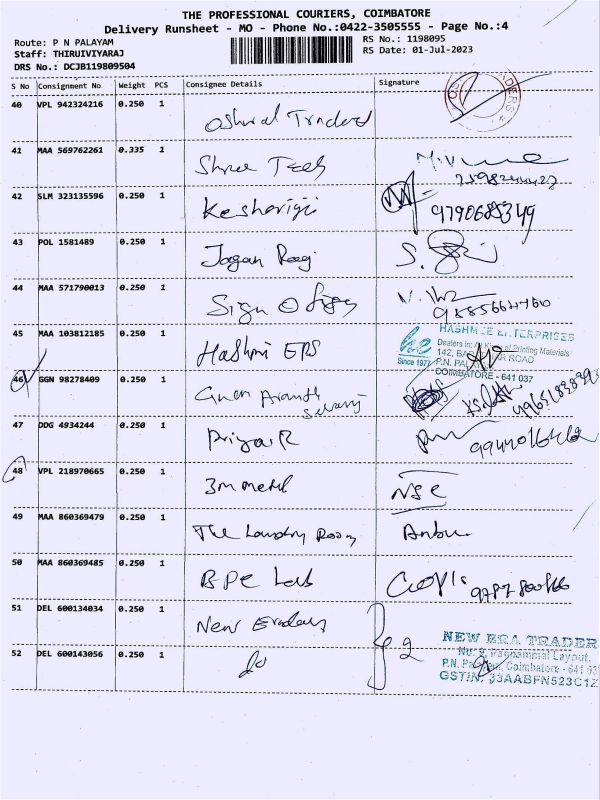 THE PROFESSIONAL COURIERS, COIMBATORE
Delivery Runsheet - MO - Phone No.:0422-3505555 - Page No.:4
Route: P N PALAYAM
RS No.: 1198095
Staff: THIRUVIYARAJ
RS Date: 01-Jul-2023
DRS No.: DCJB119809504
S No Consignment No Weight PCS Consignee Details Signature
40 VPL 942324216 0.250 1
41 MAA 569762261 0.335 1 Shree Tech
42 SLM 323135596 0.250 1 Keshariya
9790685349
43 POL 1581489 0.250 1 Jagan Raj
44 MAA 571790013 0.250 1 Sign O
45 MAA 103812185 0.250 1 Hashmi EPS
HASHMEE ENTERPRISES
Dealers in: All Kinds of Printing Materials
Since 1977
142, ROAD
P.N. PA
COIMBATORE - 641 037
46 GGN 98278409 0.250 1
47 DDG 4934244 0.250 1 Priya R
48 VPL 218970665 0.250 1 3m metal NSE
49 MAA 860369479 0.250 1 The Laundry Room Anbu
50 MAA 860369485 0.250 1
51 DEL 600134034 0.250 1 New
2
52 DEL 600143056 0.250 1 do
NEW ERA TRADER
Layout,
P.N. Coimbatore - 641 03
GSTIN: 33AABFN523C1Z